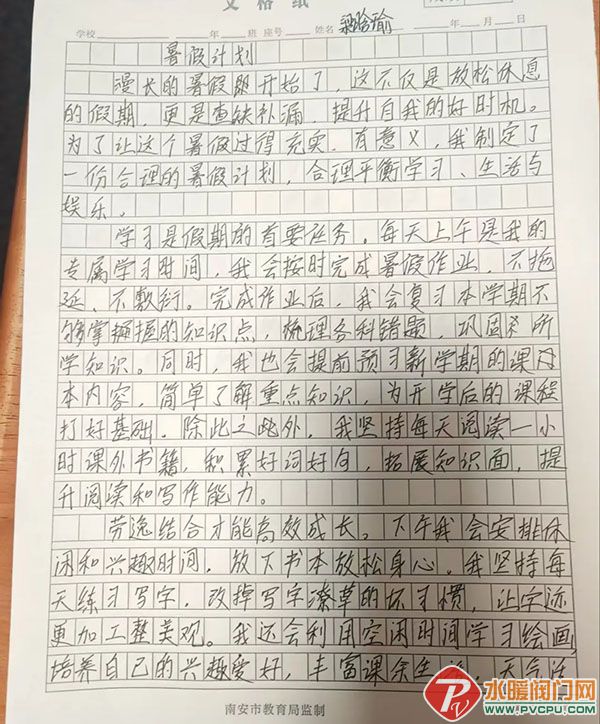 文格纸
学校 年 班 座号 姓名 梁晗瑜 年 月 日
暑假计划
漫长的暑假即开始了，这不仅是放松休息
的假期，更是查缺补漏，提升自我的好时机。
为了让这个暑假过得充实，有意义，我制定了
一份合理的暑假计划，合理平衡学习、生活与
娱乐。
学习是假期的首要任务，每天上午是我的
专属学习时间，我会按时完成暑假作业，不拖
延、不敷衍。完成作业后，我会复习本学期不
够掌握握的知识点，梳理各科错题，巩固所
学知识。同时，我也会提前预习新学期的课
本内容，简单了解重点知识，为开学后的课程
打好基础。除此之此外，我坚持每天阅读一小
时课外书籍，积累好词好句，拓展知识面，提
升阅读和写作能力。
劳逸结合才能高效成长。下午我会安排休
闲和兴趣时间，放下书本放松身心。我坚持每
天练习写字，改掉写字潦草的坏习惯，让字迹
更加工整美观。我还会利用空闲时间学习绘画，
培养自己的兴趣爱好，丰富课余生活，天气
南安市教育局监制
水暖阀门网
WWW.PVCPU.COM